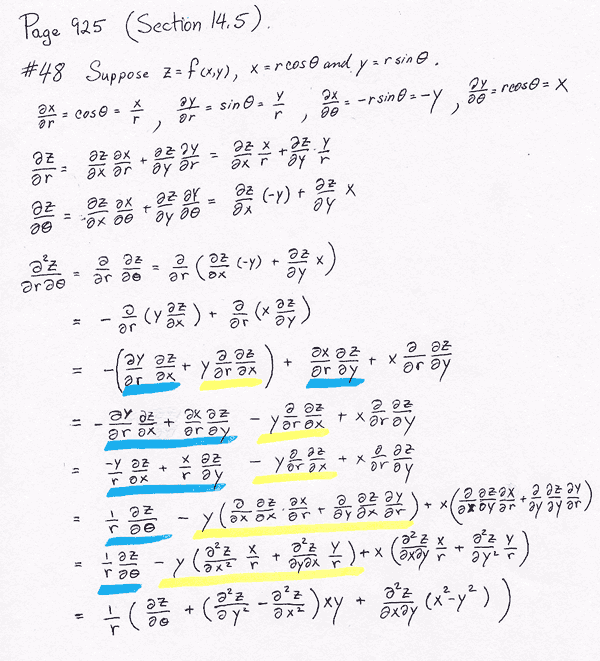 Page 925 (Section 14.5).
#48 Suppose z = f(x,y), x = r cos θ and y = r sin θ.
∂x/∂r = cos θ = x/r , ∂y/∂r = sin θ = y/r , ∂x/∂θ = -r sin θ = -y , ∂y/∂θ = r cos θ = x
∂z/∂r = ∂z/∂x ∂x/∂r + ∂z/∂y ∂y/∂r = ∂z/∂x x/r + ∂z/∂y · y/r
∂z/∂θ = ∂z/∂x ∂x/∂θ + ∂z/∂y ∂y/∂θ = ∂z/∂x (-y) + ∂z/∂y x
∂²z/∂r∂θ = ∂/∂r ∂z/∂θ = ∂/∂r (∂z/∂x (-y) + ∂z/∂y x)
= - ∂/∂r (y ∂z/∂x) + ∂/∂r (x ∂z/∂y)
= -(∂y/∂r ∂z/∂x + y ∂/∂r ∂z/∂x) + ∂x/∂r ∂z/∂y + x ∂/∂r ∂z/∂y
= - ∂y/∂r ∂z/∂x + ∂x/∂r ∂z/∂y - y ∂/∂r ∂z/∂x + x ∂/∂r ∂z/∂y
= -y/r ∂z/∂x + x/r ∂z/∂y - y ∂/∂r ∂z/∂x + x ∂/∂r ∂z/∂y
= 1/r ∂z/∂θ - y (∂/∂x ∂z/∂x · ∂x/∂r + ∂/∂y ∂z/∂x ∂y/∂r) + x (∂/∂x ∂z/∂y ∂x/∂r + ∂/∂y ∂z/∂y ∂y/∂r)
= 1/r ∂z/∂θ - y (∂²z/∂x² x/r + ∂²z/∂y∂x y/r) + x (∂²z/∂x∂y x/r + ∂²z/∂y² y/r)
= 1/r (∂z/∂θ + (∂²z/∂y² - ∂²z/∂x²) xy + ∂²z/∂x∂y (x²-y²))